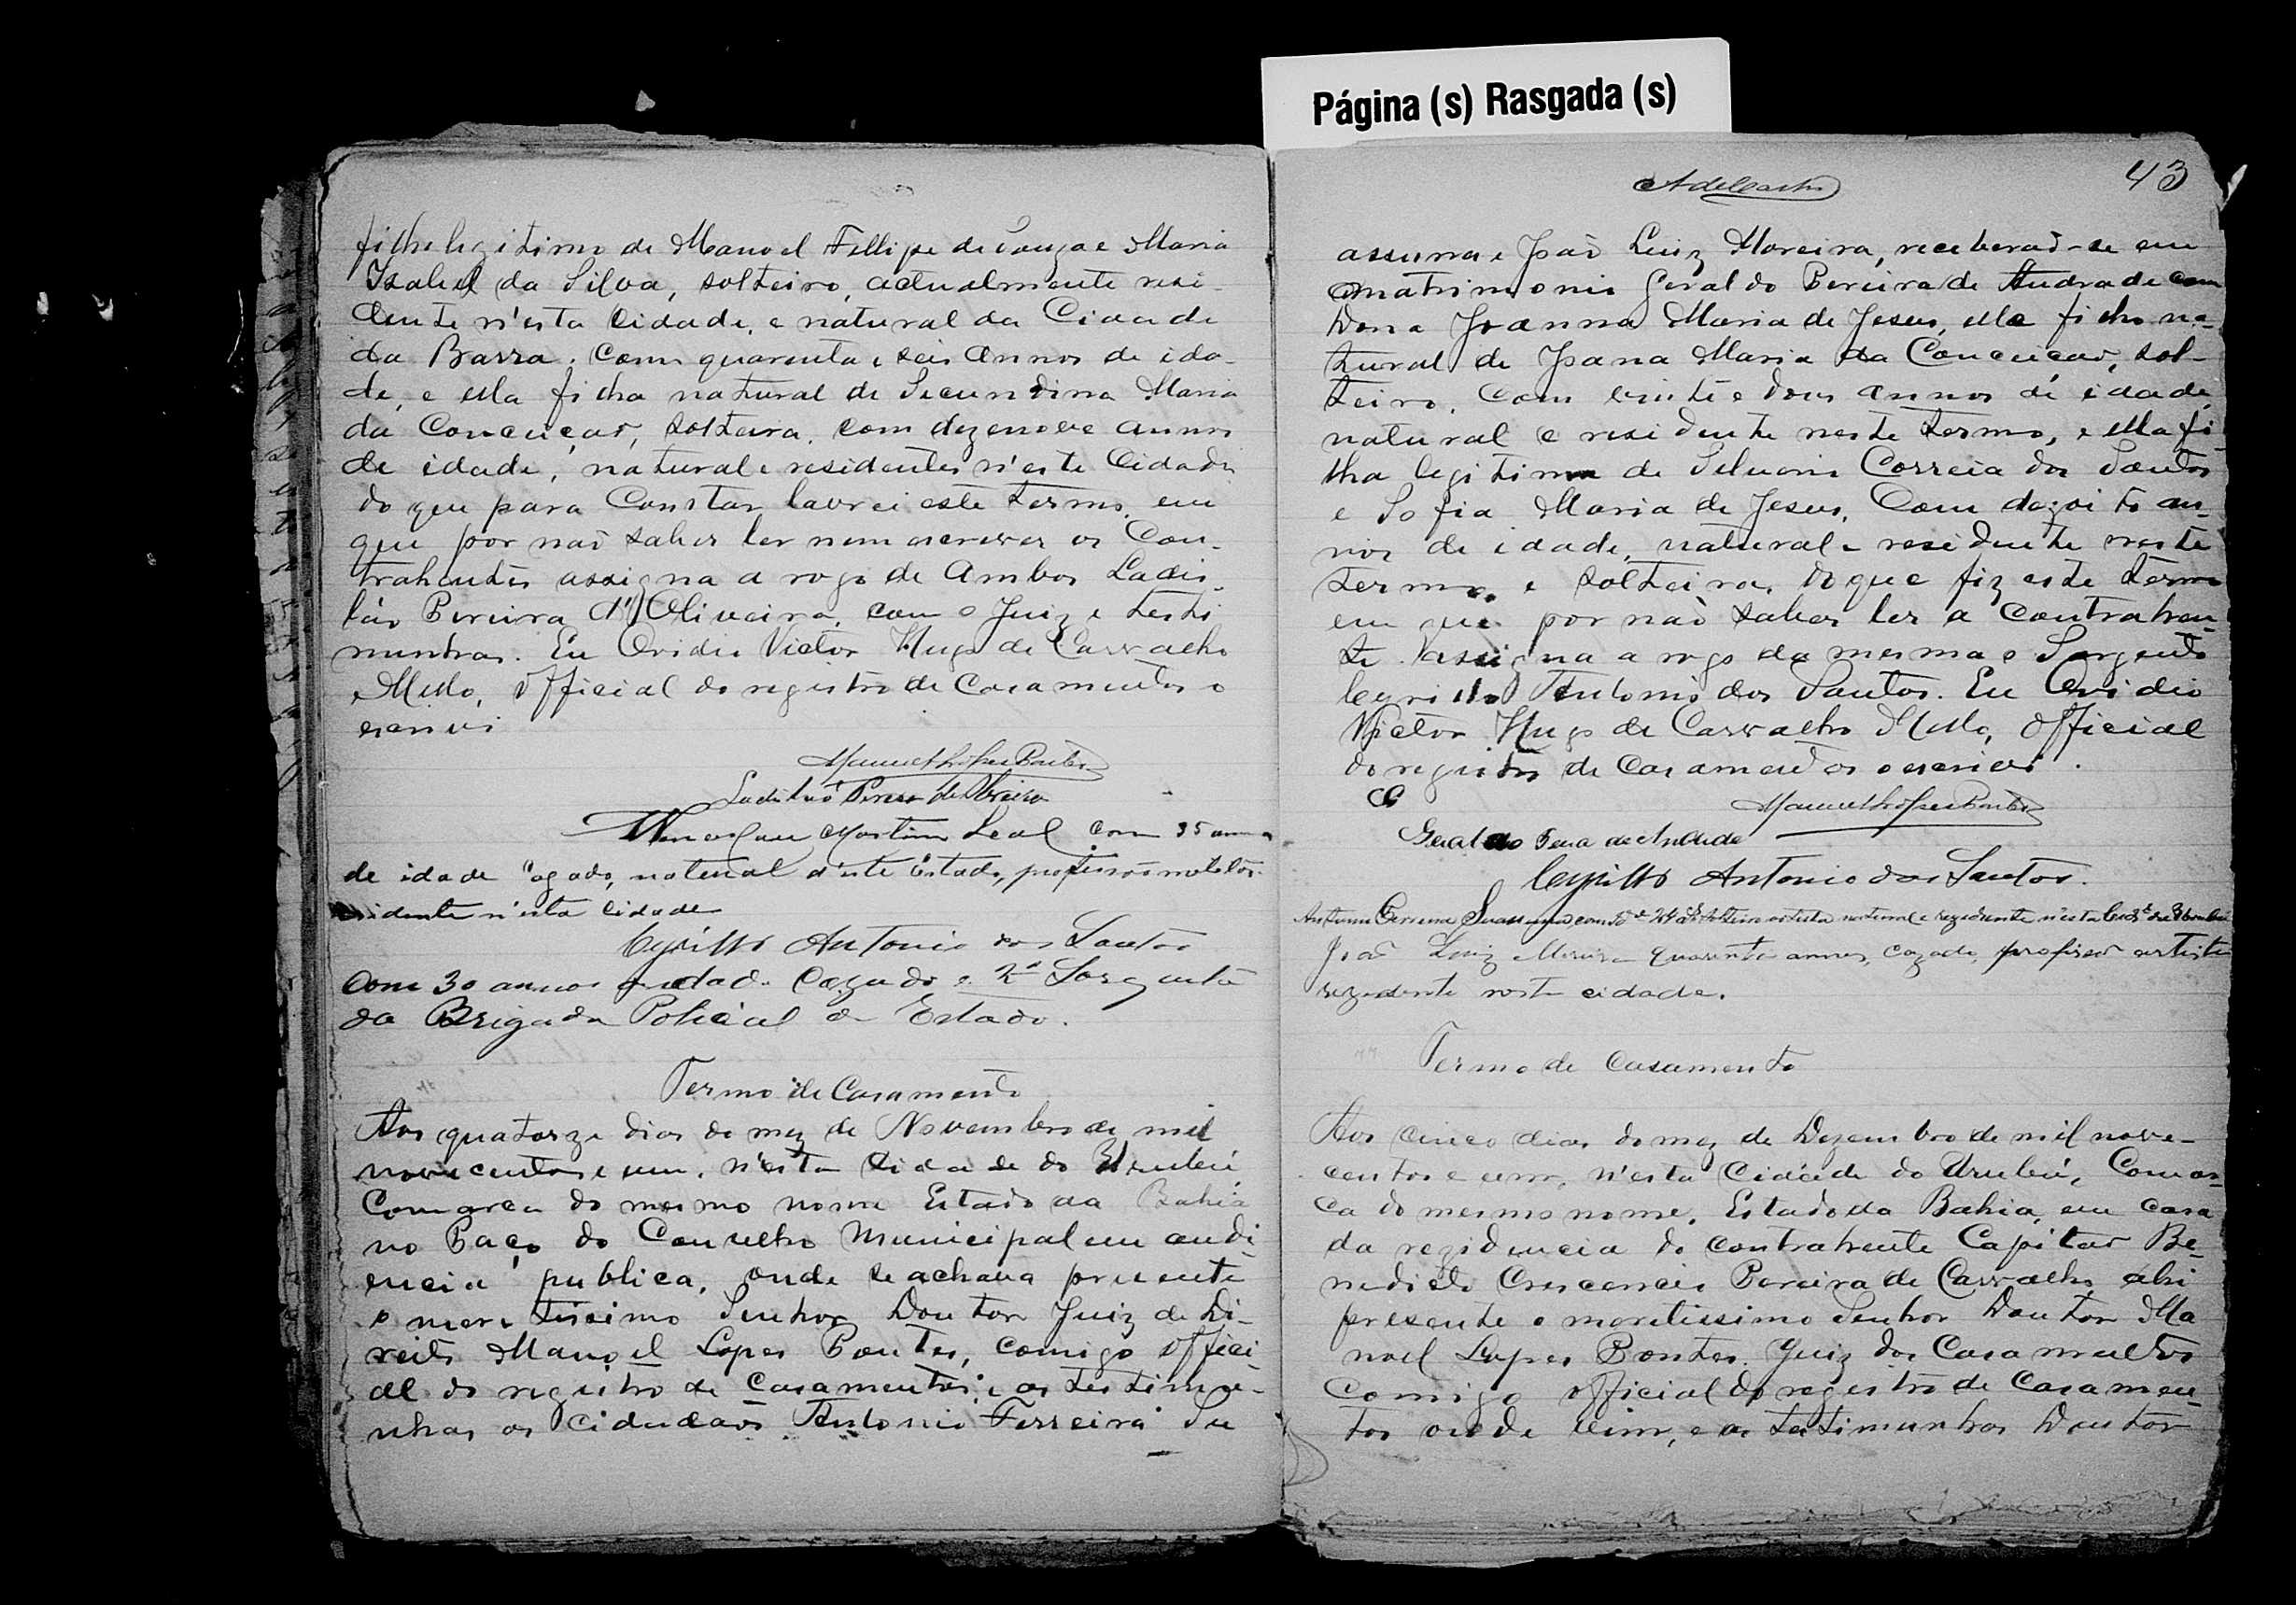 Página (s) Rasgada (s)
filho legitimo de Manoel Fellipe de Souza e Maria
Izabel da Silva, solteiro, actualmente resi-
dente n'esta Cidade, e natural da Cidade
da Barra, com quarenta e seis annos de ida-
de, e ella filha natural de Secundina Maria
da Conceiçaõ, solteira, com dezenove annos
de idade, natural e residentes n'esta Cidade
do que para constar lavrei este termo, em
que por naõ saber ler nem escrever os Con-
trahentes assigna a rogo de ambos Ladis-
láo Pereira d'Oliveira, com o Juiz e testi
munhas. Eu Ovidio Victor Hugo de Carvalho
e Mello, official do registro de casamentos o
escrevi
Manuel Lopes Pontes
Ladisláo Pereira de Oliveira
Wencesláu Martins Leal com 35 annos
de idade casado, natural d'este Estado, profissaõ
sidente n'esta cidade
Cyrillo Antonio dos Santos
com 30 annos casado e 2º Sargento
da Brigada Policial do Estado.
Termo de Casamento
Aos quatorze dias do mez de Novembro de mil
novecentos e um, n'esta Cidade do Urubú,
Comarca do mesmo nome Estado da Bahia
no Paço do Conselho Municipal em audi-
encia publica, onde se achava presente
o meretissimo Senhor Doutor Juiz de Di-
reito Manoel Lopes Pontes, comigo offici-
al do registro de casamentos, e as testimu-
nhas os cidadaõs Antonio Ferreira Su
43
assuna e Joaõ Luiz Moreira, receberaõ-se em
matrimonio Geraldo Pereira de Andrade com
Dona Joanna Maria de Jesus, elle filho na-
tural de Joana Maria da Conceiçaõ, sol-
teiro, com vinte e dous annos de idade,
natural e residente neste termo, e ella fi
lha legitima de Silverio Correia dos Santos
e Sofia Maria de Jesus, com dezoito an-
nos de idade, natural e residente neste
termo, e solteira, do que fiz este termo
em que por naõ saber ler a contrahen-
te assigna a rogo da mesma o Sargento
Cyrillo Antonio dos Santos. Eu Ovidio
Victor Hugo de Carvalho Mello, official
do registro de casamentos o escrevi.
Manuel Lopes Pontes
Geraldo Pera de Andrade
Cyrillo Antonio dos Santos.
Antonio Ferreira com 24 solteiro artista natural e rezidente n'esta
Joaõ Luiz Moreira quarenta annos, cazado, profisaõ artista
rezidente nesta cidade.
Termo de Casamento
Aos cinco dias do mez de Dezembro de mil nove-
centos e um, n'esta Cidade do Urubú, Comar-
ca do mesmo nome, Estado da Bahia, em casa
da rezidencia do contrahente Capitaõ Be-
nedicto Crescencio Pereira de Carvalho, ahi
presente o meretissimo Senhor Doutor Ma
noel Lopes Pontes, Juiz dos Casamentos
Comigo official do registro de Casamen-
tos onde vim, e as testimunhas Doutor